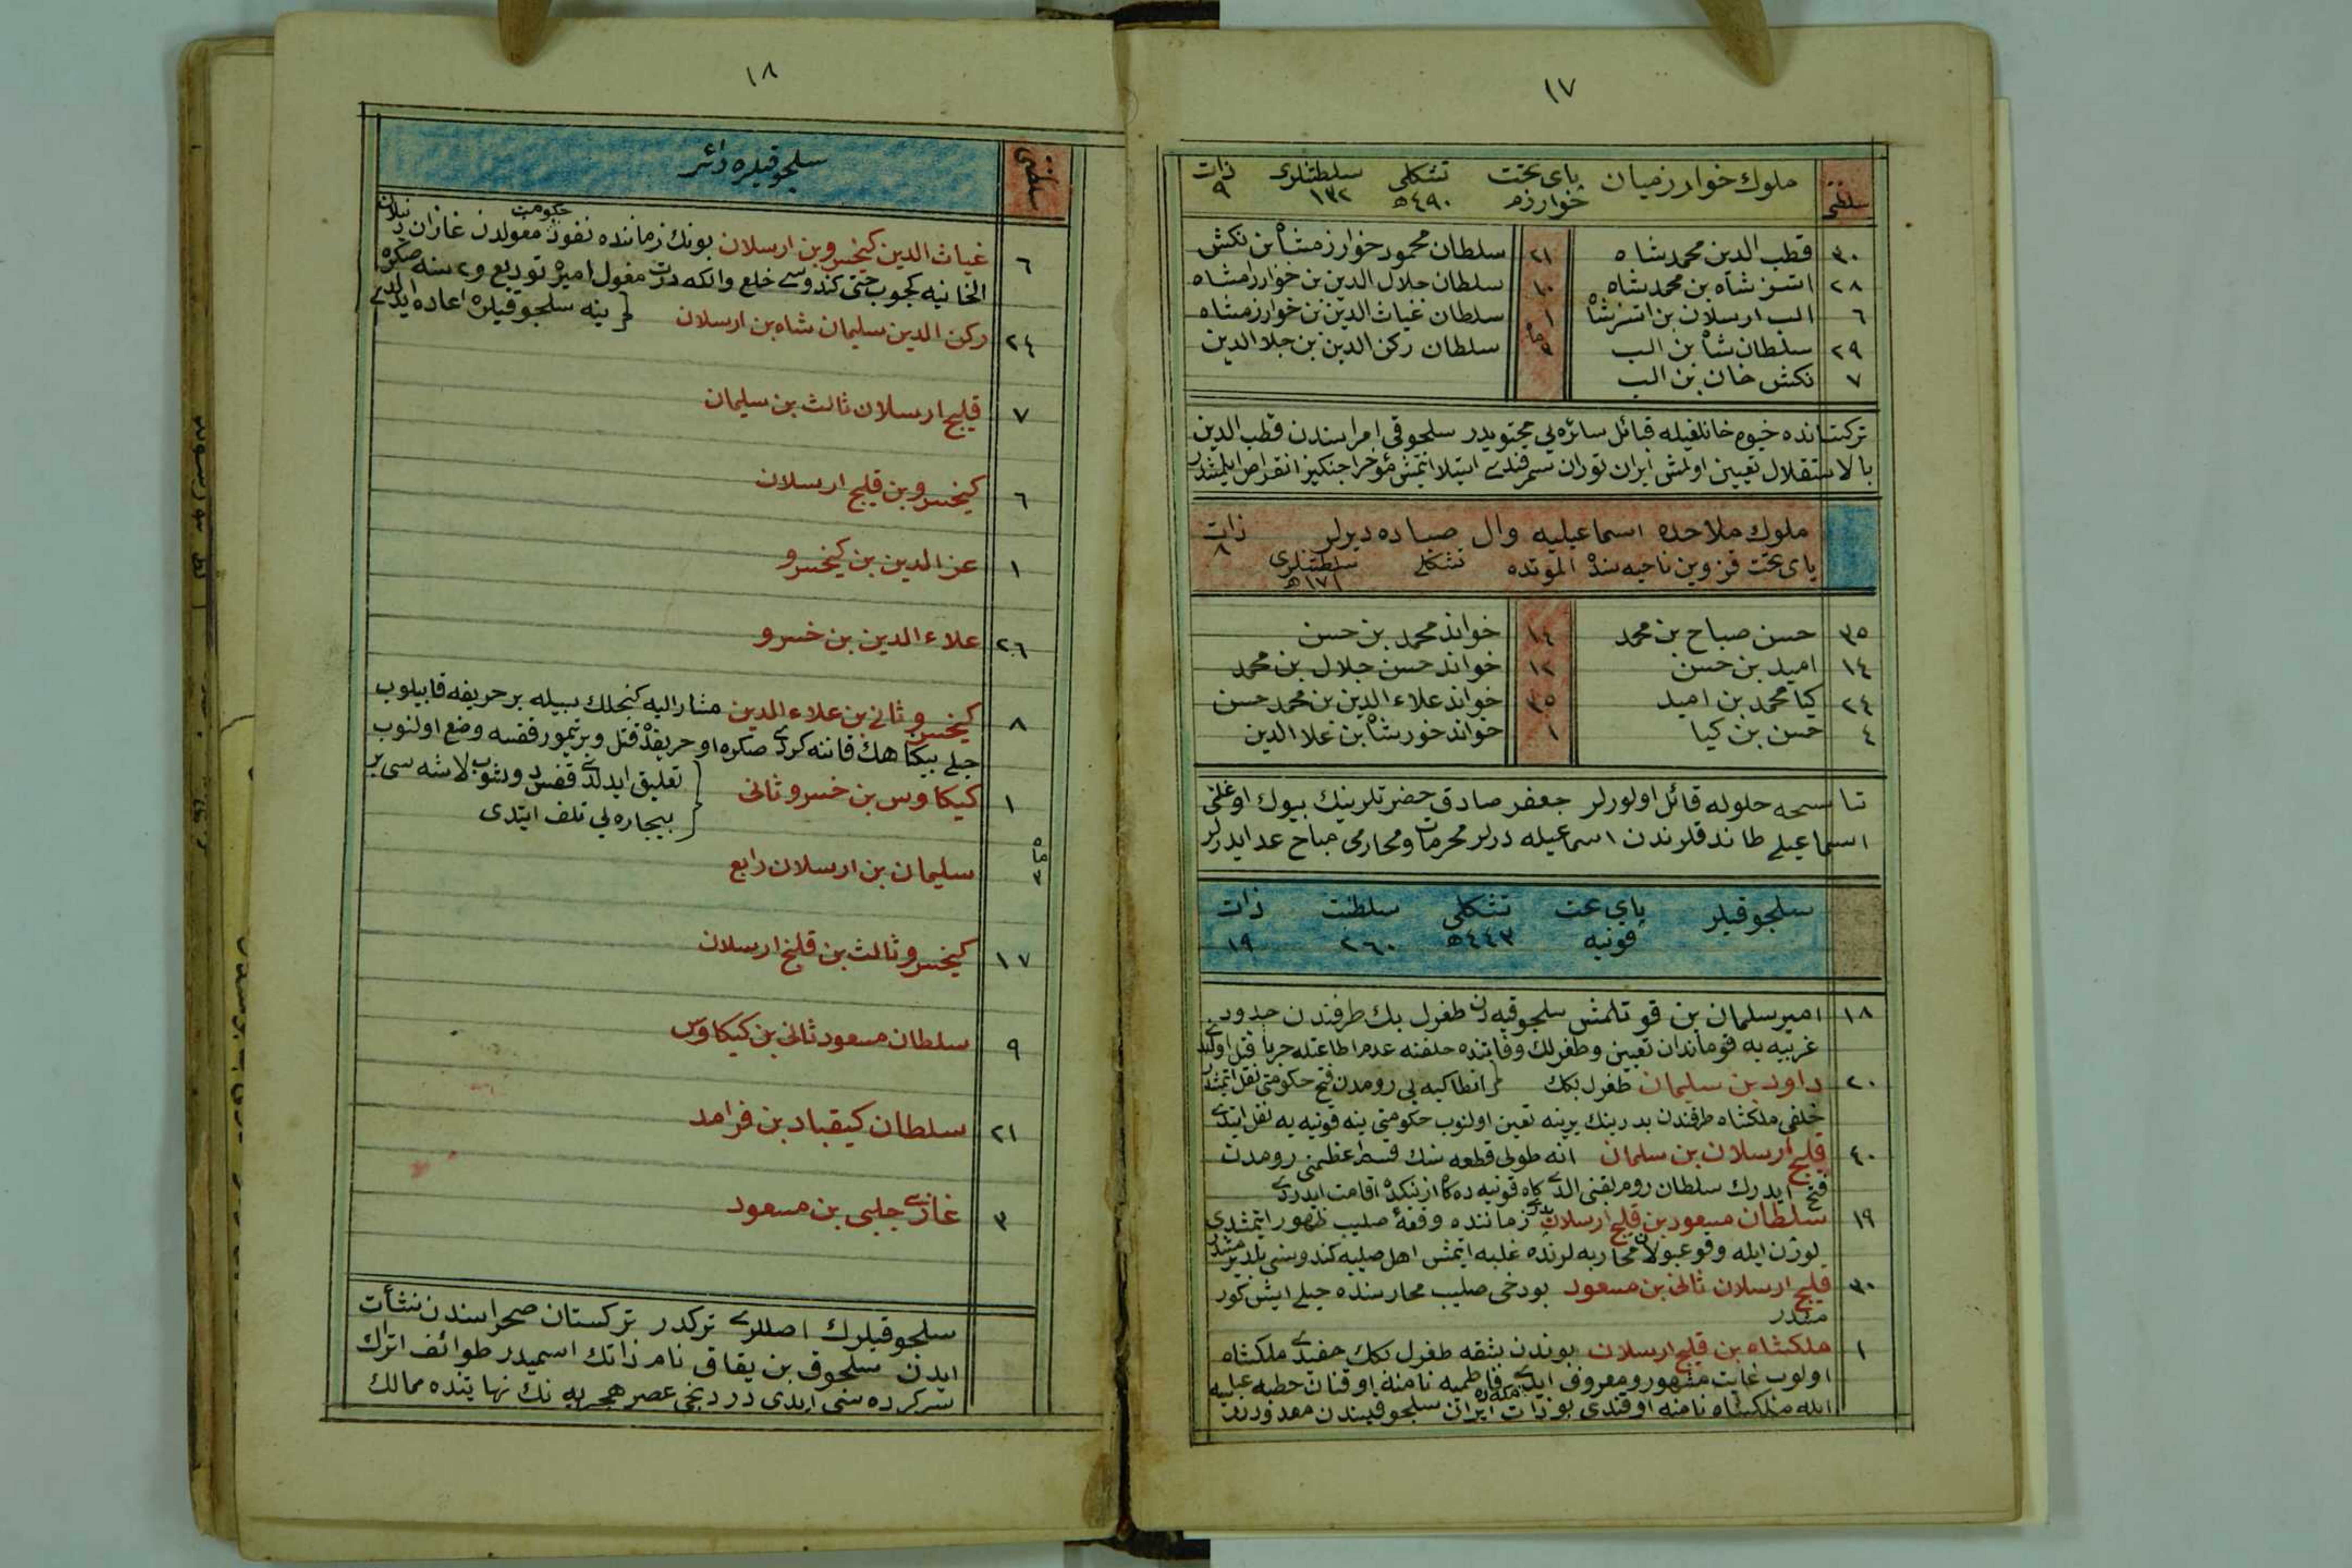 ١٧
سلطنتی ملوك خوارزميان پای تخت تشكلی سلطنتلری ذات
خوارزم ٤٩٠ھ ١٣٢ ٩
٣٠ قطب الدين محمد شاه ٢١ سلطان محمود خوارزمشاه بن نكش
٢٨ اتسز شاه بن محمد شاه ١٠ سلطان جلال الدين بن خوارزمشاه
٦ الب ارسلان بن اتسز شاه ١ سلطان غياث الدين بن خوارزمشاه
٢٩ سلطان شاه بن الب ٣ ماه سلطان ركن الدين بن جلا الدين
٧ نكش خان بن الب
تركستانده خيوه خانلغيله قبائل سائره يی محتويدر سلجوقی امراسندن قطب الدين
بالاستقلال تعيين اولمش ايران توران سمرقندی استيلا ايتمش مؤخرا جنكيز انقراض ايلمشدر
ملوك ملاحده اسماعيليه وال صباده ديرلر ذات
پای تخت قزوين ناحيه سنده الموتده تشكلی سلطنتلری ٨
١٧١ھ
٣٥ حسن صباح بن محمد ١٤ خواند محمد بن حسن
١٤ اميد بن حسن ١٢ خواند حسن جلال بن محمد
٢٤ كيا محمد بن اميد ٣٥ خواند علاء الدين بن محمد حسن
٤ حسن بن كيا ١ خواند خورشاه بن علا الدين
تناسخه حلوله قائل اولورلر جعفر صادق حضرتلرينك بيوك اوغلی
اسماعيلی طاندقلرندن اسماعيله ديرلر محرمات ومحارمی مباح عد ايدرلر
سلجوقيلر پای تخت تشكلی سلطنت ذات
قونيه ٤٤٣ھ ٢٦٠ ١٩
١٨ امير سليمان بن قوتلمش سلجوقيه دن طغرل بك طرفندن حدود
غربيه يه قوماندان تعيين وطغرلك وفاتنده خلفنه عدم اطاعتله حربا قتل اولندی
٢٠ داود بن سليمان طغرل بكك } انطاكيه يی رومدن فتح حكومتی نقل ايتمشدر
خلفی ملكشاه طرفندن پدرينك يرينه تعين اولنوب حكومتی ينه قونيه يه نقل ايتدی
٤٠ قليج ارسلان بن سلمان انه طولی قطعه سنك قسم اعظمنی رومدن
فتح ايدرك سلطان روم لقبنی الدی كاه قونيه ده كاه ازنكده اقامت ايدردی
١٩ سلطان مسعود بن قليج ارسلان زماننده وقعۀ صليب ظهور ايتمشدی
لوژن ايله وقوعبولان محاربه لرنده غلبه ايتمش اهل صليبه كندوسنی بلديرمشدر
٣٠ قليج ارسلان ثانی بن مسعود بودخی صليب محاربسنده خيلی ايش كور
مشدر
١ ملكشاه بن قليج ارسلان بوندن بشقه طغرل بكك حفيدی ملكشاه
اولوب غايت مشهور ومعروف ايدی مكه ده فاطميه نامنه اوقنان خطبه عباسيه
ايله ملكشاه نامنه اوقندی بو ذات ايران سلجوقيسندن معدوددر
١٨
سلطنتی سلجوقيلره دائر
٦ غياث الدين كيخسرو بن ارسلان بونك زماننده نفوذ حكومت مغولدن غازان
الخانيه كچوب حتی كندوسی خلع والكه درت مغول اميره توديع و٢ سنه صكره
٢٤ ركن الدين سليمان شاه بن ارسلان } ينه سلجوقيلره اعاده ايدلدی
٧ قليج ارسلان ثالث بن سليمان
٦ كيخسرو بن قليج ارسلان
١ عز الدين بن كيخسرو
٢٦ علاء الدين بن خسرو
٨ كيخسرو ثانی بن علاء الدين مشار اليه كنجلك سببيله بر حريفه قاپيلوب
خيلی بيكناهك قاننه كردی صكره او حريفده قتل وبر تيمور قفسه وضع اولنوب
١ كيكاوس بن خسرو ثانی } تعليق ايدلدی قفس دوشوب لاشه سی بر
بيچاره يی تلف ايتدی
٣ ماه سليمان بن ارسلان رابع
١٧ كيخسرو ثالث بن قليج ارسلان
٩ سلطان مسعود ثانی بن كيكاوس
٢١ سلطان كيقباد بن فرامد
٣ غازی چلبی بن مسعود
سلجوقيلرك اصللری تركدر تركستان صحراسندن نشأت
ايدن سلجوق بن يقاق نام ذاتك اسميدر طوائف اتراك
سركرده سی ايدی دردنجی عصر هجريه نك نهايتنده ممالك